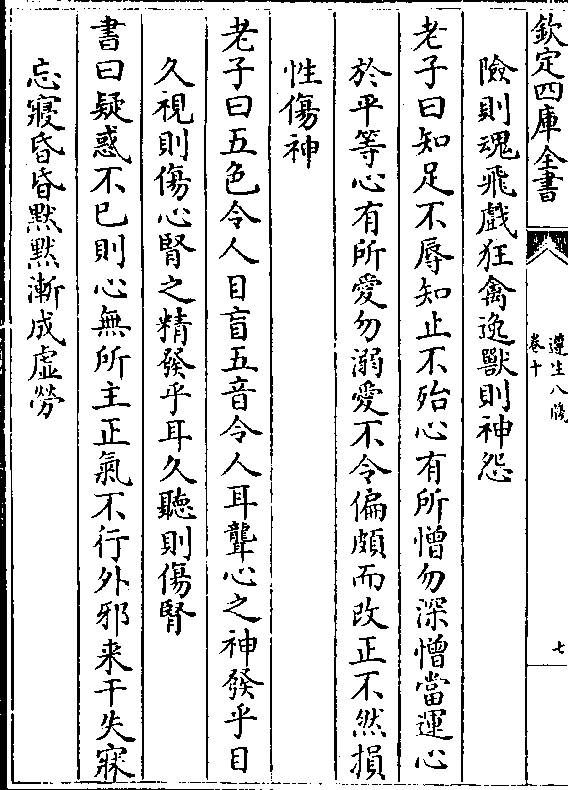 欽定四庫全書
遵生八牋
卷十
七
險則魂飛戲狂禽逸獸則神怨
老子曰知足不辱知止不殆心有所憎勿深憎當運心
於平等心有所愛勿溺愛不令偏頗而改正不然損
性傷神
老子曰五色令人目盲五音令人耳聾心之神發乎目
久視則傷心腎之精發乎耳久聽則傷腎
書曰疑惑不已則心無所主正氣不行外邪来干失寐
忘寢昏昏默默漸成虛勞